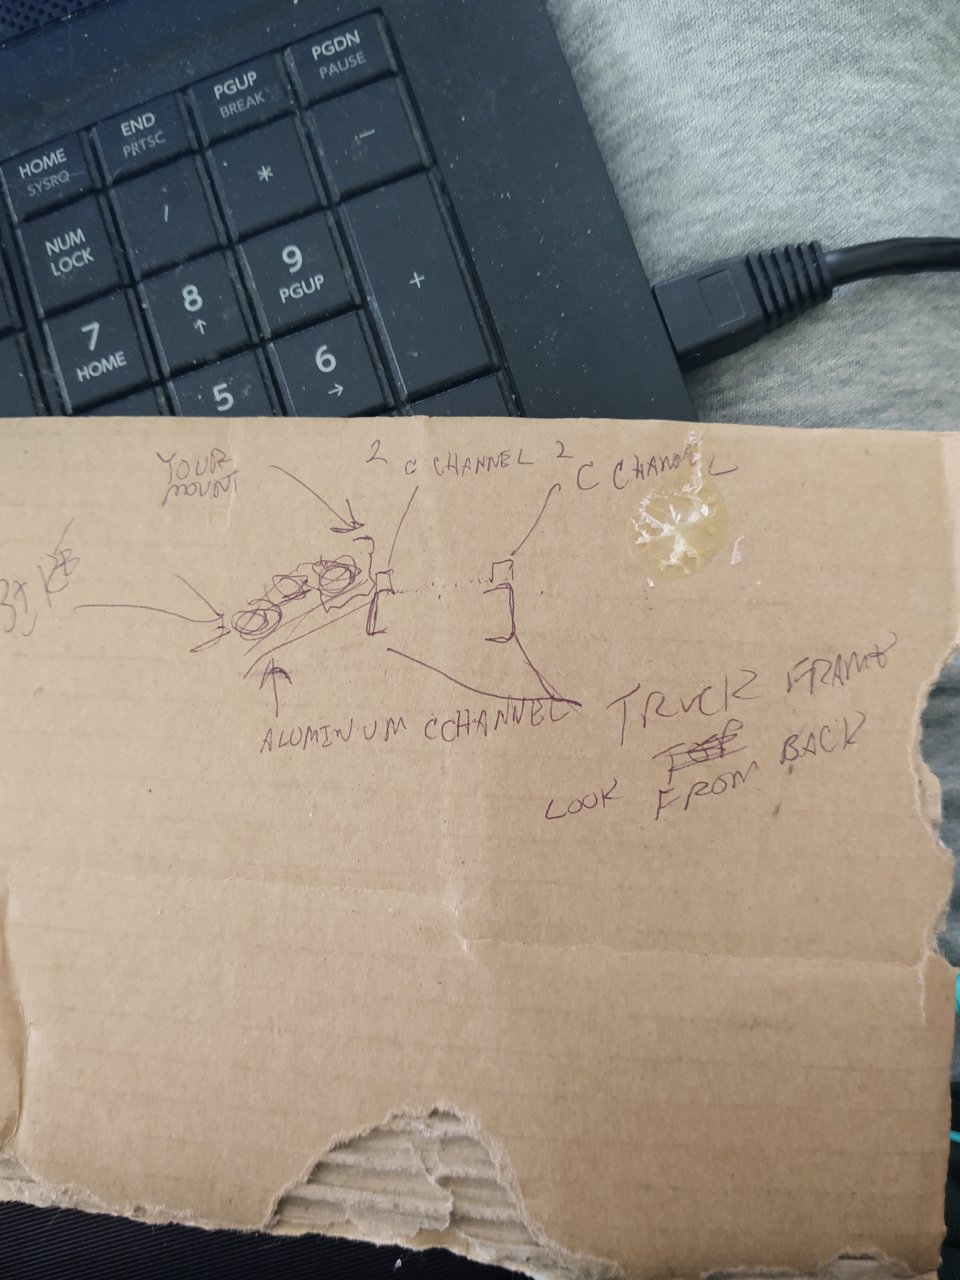 PGDN
PAUSE
PGUP
BREAK
END
PRTSC
HOME
SYSRQ
-
*
/
NUM
LOCK
+
9
PGUP
8
↑
7
HOME
6
→
5
YOUR
MOUNT
2 C CHANNEL
2 C CHANNEL
ALUMINUM CCHANNEL
TRUCK FRAME
LOOK FROM BACK